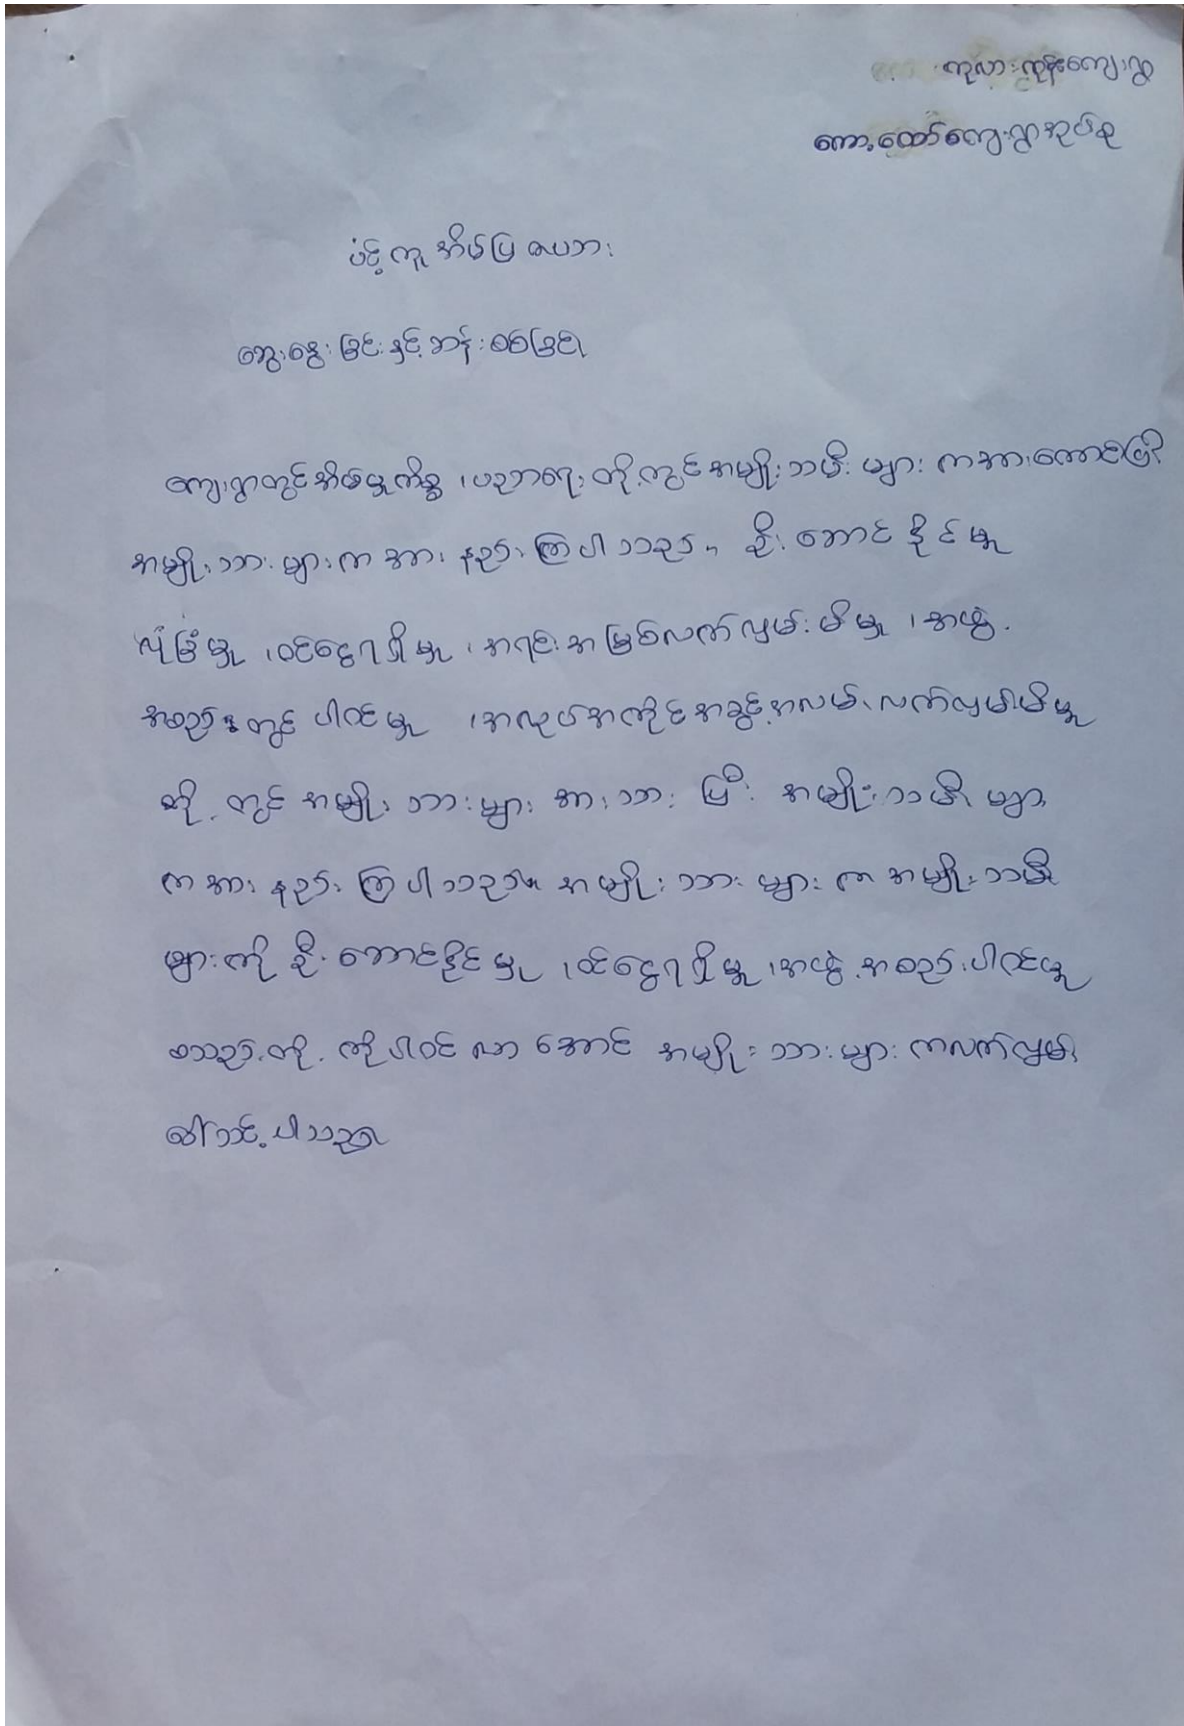 ကုလားကုန်းကျေးရွာ
ကော့ထော်ကျေးရွာအုပ်စု
ပံ့ပိုးကူအိမ်ပြ ဇယား
ဆွေးနွေးခြင်းနှင့်ဆန်းစစ်ခြင်း
ကျေးရွာတွင်အိမ်မှုကိစ္စ ၊ပညာရေးတို့တွင်အမျိုးသမီးများ ကအားကောင်းပြီး
အမျိုးသားများကအားနည်းကြပါသည်။ ဦးဆောင်နိုင်မှု
လုံခြုံမှု ၊ဝင်ငွေရရှိမှု ၊အရင်းအမြစ်လက်လှမ်းမီမှု ၊အဖွဲ့
အစည်းတွင်ပါဝင်မှု ၊အလုပ်အကိုင်အခွင့်အလမ်းလက်လှမ်းမီမှု
တို့တွင်အမျိုးသားများအားသာပြီးအမျိုးသမီးများ
ကအားနည်းကြပါသည်။အမျိုးသားများကအမျိုးသမီး
များကိုဦးဆောင်နိုင်မှု ၊ဝင်ငွေရရှိမှု ၊အဖွဲ့အစည်းပါဝင်မှု
စသည်တို့ကိုပါဝင်လာအောင်အမျိုးသားများကလက်လှမ်း
ခေါ်သင့်ပါသည်။